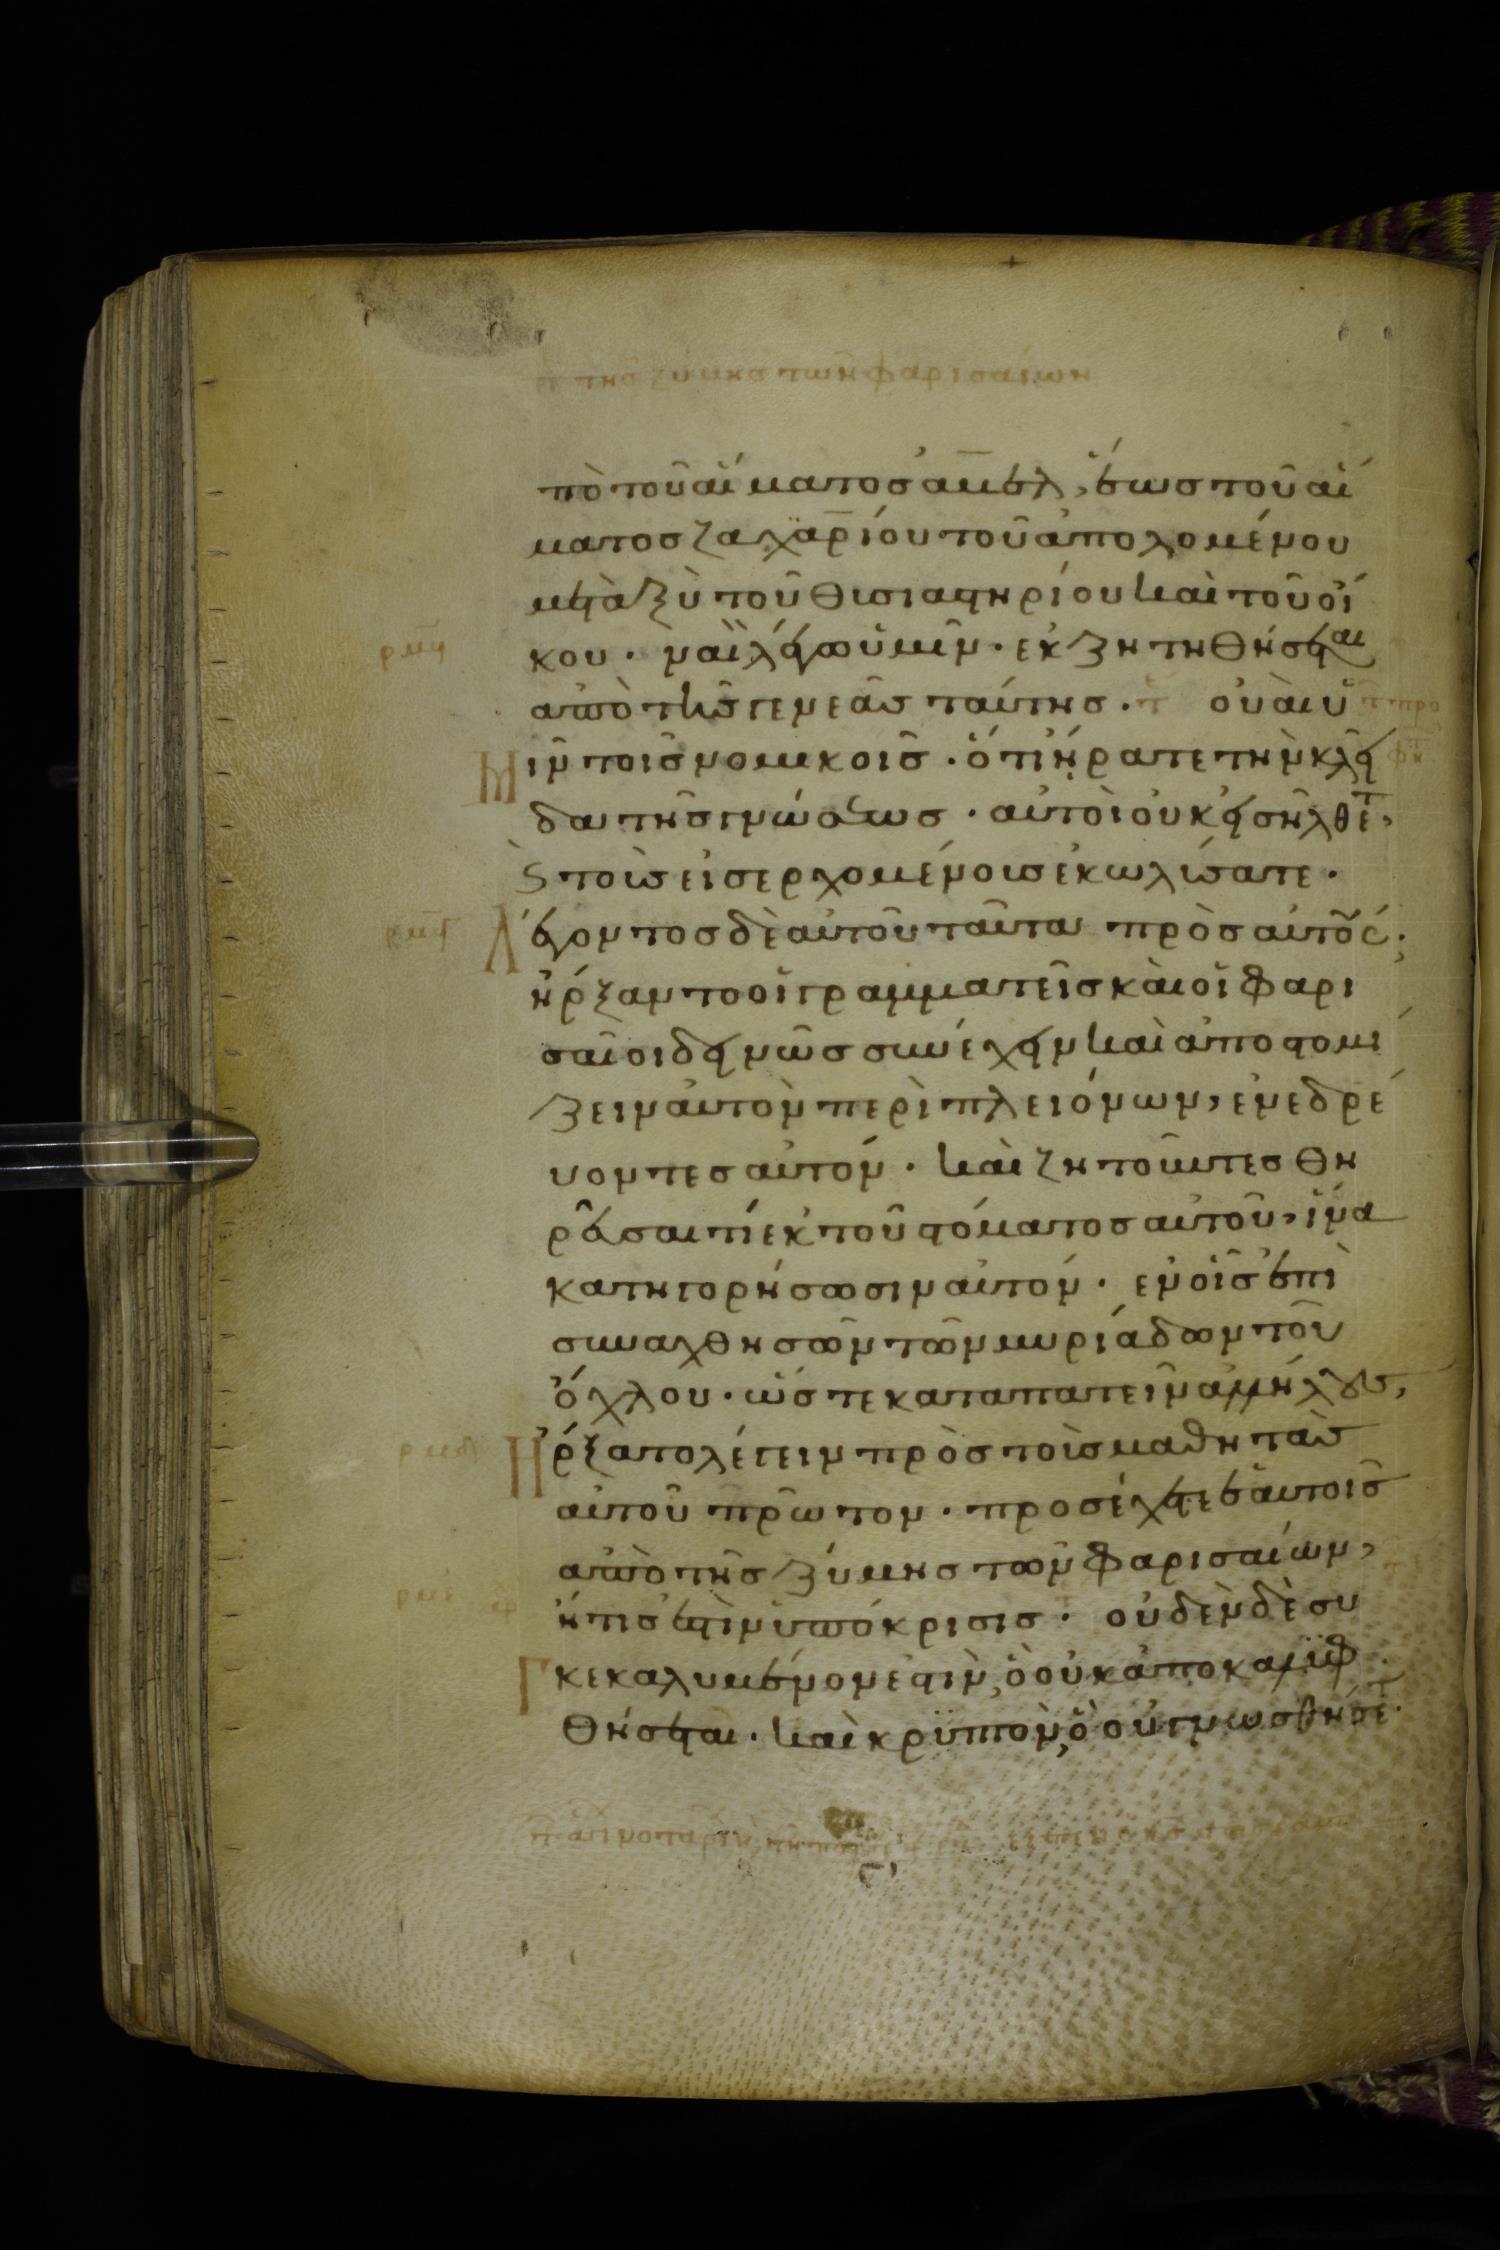 π τῆς ζύμης τῶν φαρισαίων
πὸ τοῦ αἵματος ἀμβελ, ἕως τοῦ αἵ
ματος ζαχαρίου τοῦ ἀπολομένου
μεταξὺ τοῦ θισιαστηρίου καὶ τοῦ οἴ
ρμη
κου · ναὶ λέγω ὑμῖν · ἐκζητηθήσεται
ἀπὸ τῆς γενεᾶς ταύτης · τ οὐαὶ ὑ
μῖν τοῖς νομικοῖς · ὅτι ἤρατε τὴν κλεῖ
δα τῆς γνώσεως · αὐτοὶ οὐκ εἰσήλθετ,
ϛ τοὺς εἰσερχομένους ἐκωλύσατε ·
Λέγοντος δὲ αὐτοῦ ταῦτα πρὸς αὐτούς·
ἤρξαντο οἱ γραμματεῖς καὶ οἱ φαρι
σαῖοι δεινῶς συνέχειν καὶ ἀποστομί
ζειν αὐτὸν περὶ πλειόνων, ἐνεδρέ
υοντες αὐτόν · καὶ ζητοῦντες θη
ρεῦσαι τί ἐκ τοῦ στόματος αὐτοῦ, ἵνα
κατηγορήσωσιν αὐτόν · ἐν οἷς ἐπι
συναχθησῶν τῶν μυριάδων τοῦ
ὄχλου · ὥστε καταπατεῖν ἀλλήλους,
ρμδ
ἤρξατο λέγειν πρὸς τοὺς μαθητὰς
αὐτοῦ πρῶτον · προσέχετε ἑαυτοῖς
ἀπὸ τῆς ζύμης τῶν φαρισαίων,
ρμε
ἥτις ἐστὶν ὑπόκρισις · οὐδὲν δὲ συ
Γκεκαλυμμένον ἐστὶν, ὃ οὐκ ἀποκαλυφ
θήσεται · καὶ κρυπτὸν, ὃ οὐ γνωσθήσετ ·